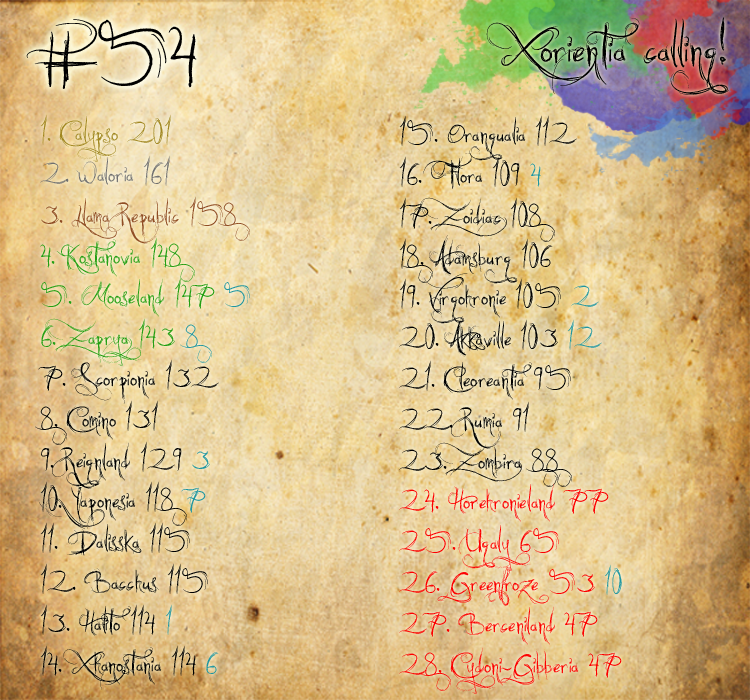 #54
Xorientia calling!
1. Calypso 201
2. Waloria 161
3. Llama Republic 158
4. Kostanovia 148
5. Mooseland 147 5
6. Zaprya 143 8
7. Scorpionia 132
8. Comino 131
9. Reignland 129 3
10. Yaponesia 118 7
11. Dalisska 115
12. Bacchus 115
13. Haito 114 1
14. Xhanostania 114 6
15. Orangualia 112
16. Flora 109 4
17. Zoidiac 108
18. Adamsburg 106
19. Virgotronie 105 2
20. Akkaville 103 12
21. Cleoreantia 95
22. Rumia 91
23. Zombira 88
24. Horetronieland 77
25. Ugaly 65
26. Greenfroze 53 10
27. Bergeniland 47
28. Cydoni-Gibberia 47